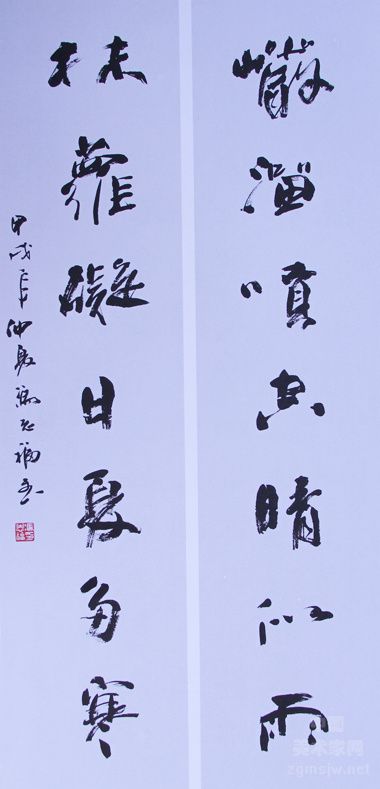 巖溜噴空晴似雨
林蘿礙日夏多寒
甲戌年仲夏 福書
中国
美术家网
zgmsjw.net